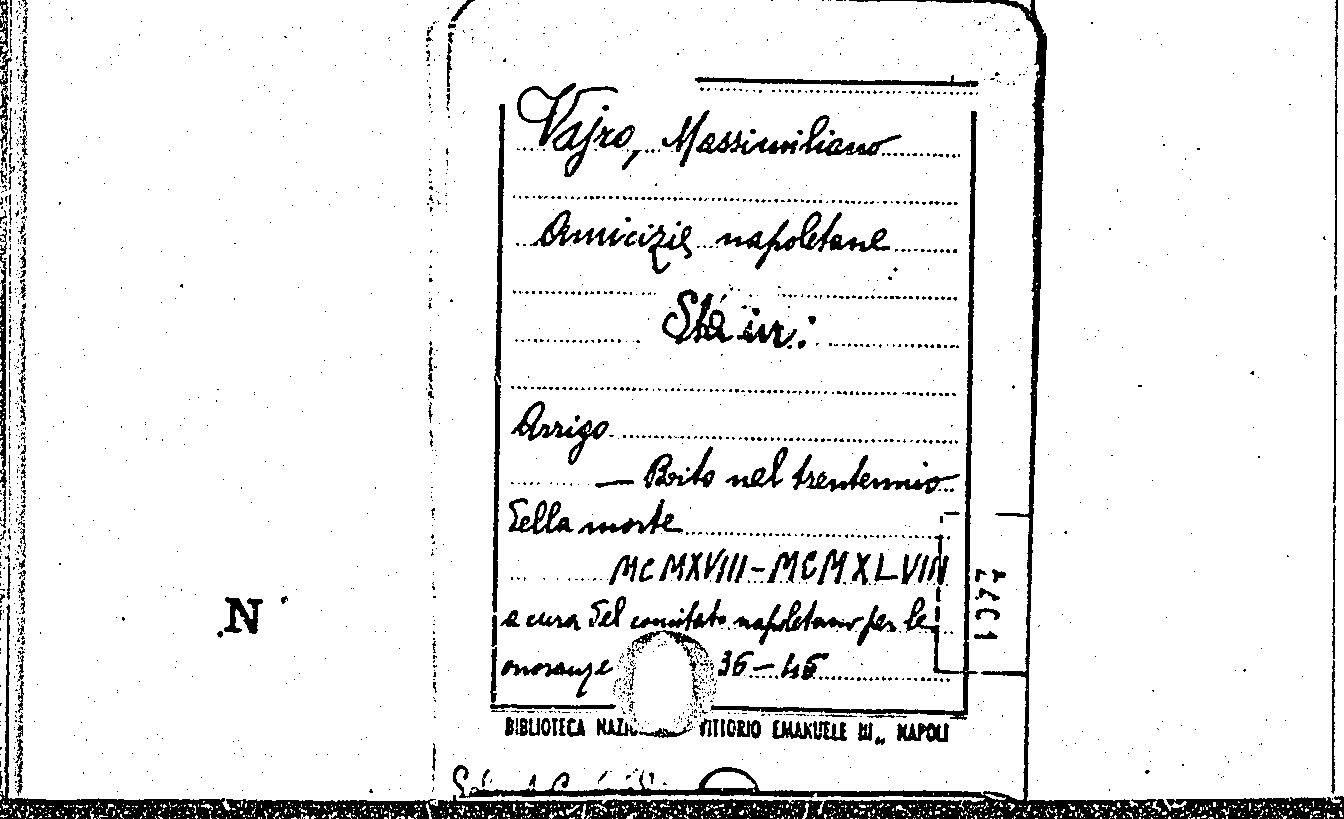 Vajro, Massimiliano
Amicizie napoletane
Sta in:
Arrigo
— Boito nel trentennio
della morte
MCMXVIII-MCMXLVIII
a cura del comitato napoletano per le
onoranze 36-45
BIBLIOTECA VITTORIO EMANUELE III,, NAPOLI
N